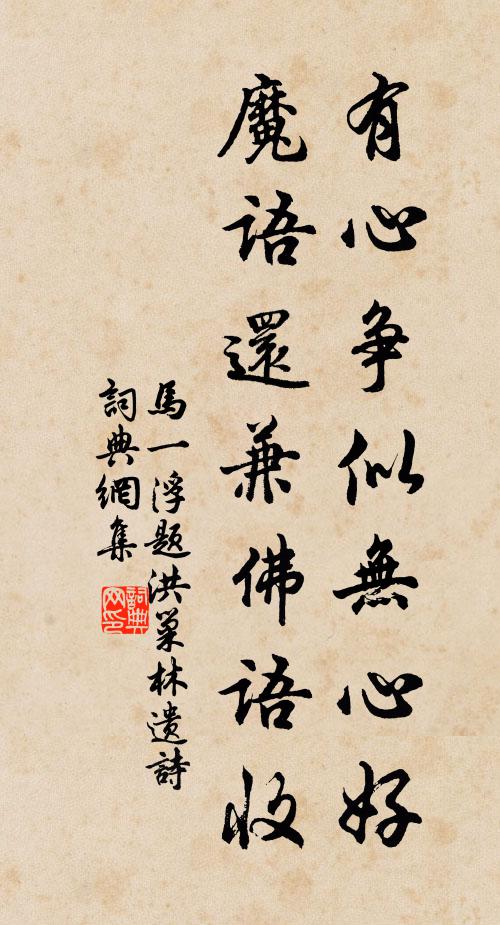 有心争似無心好
魔語還兼佛語收
馬一浮題洪巢林遺詩
詞典網集
詞典
网印